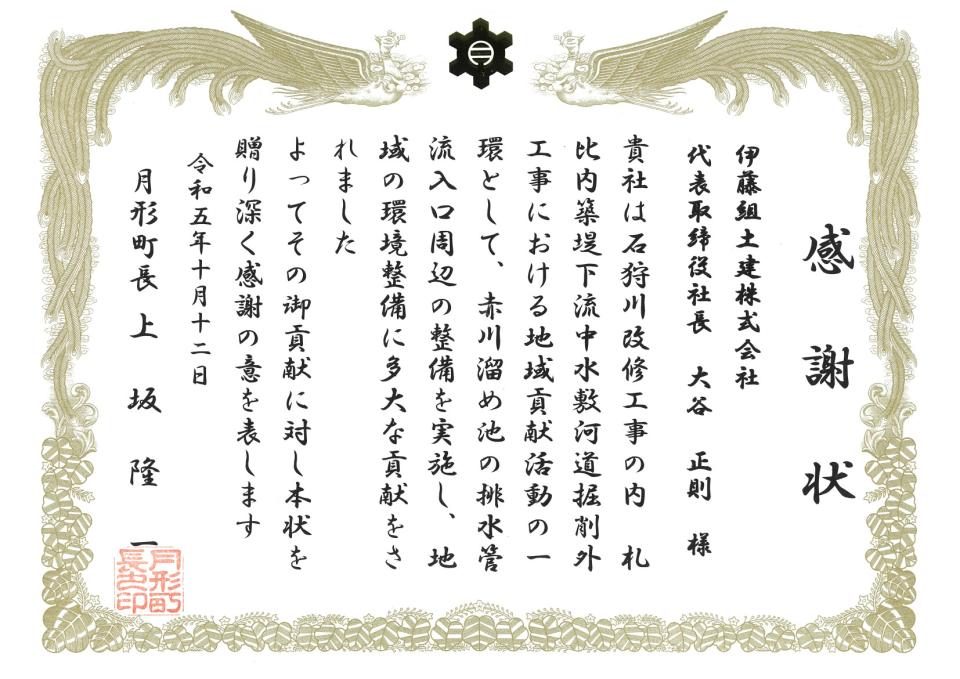 感謝状
伊藤組土建株式会社
代表取締役社長　大谷　正則　様
貴社は石狩川改修工事の内　札
比内築堤下流中水敷河道掘削外
工事における地域貢献活動の一
環として、赤川溜め池の排水管
流入口周辺の整備を実施し、地
域の環境整備に多大な貢献をさ
れました
よってその御貢献に対し本状を
贈り深く感謝の意を表します
令和五年十月十二日
月形町長　上　坂　隆　一
月形町
長之印